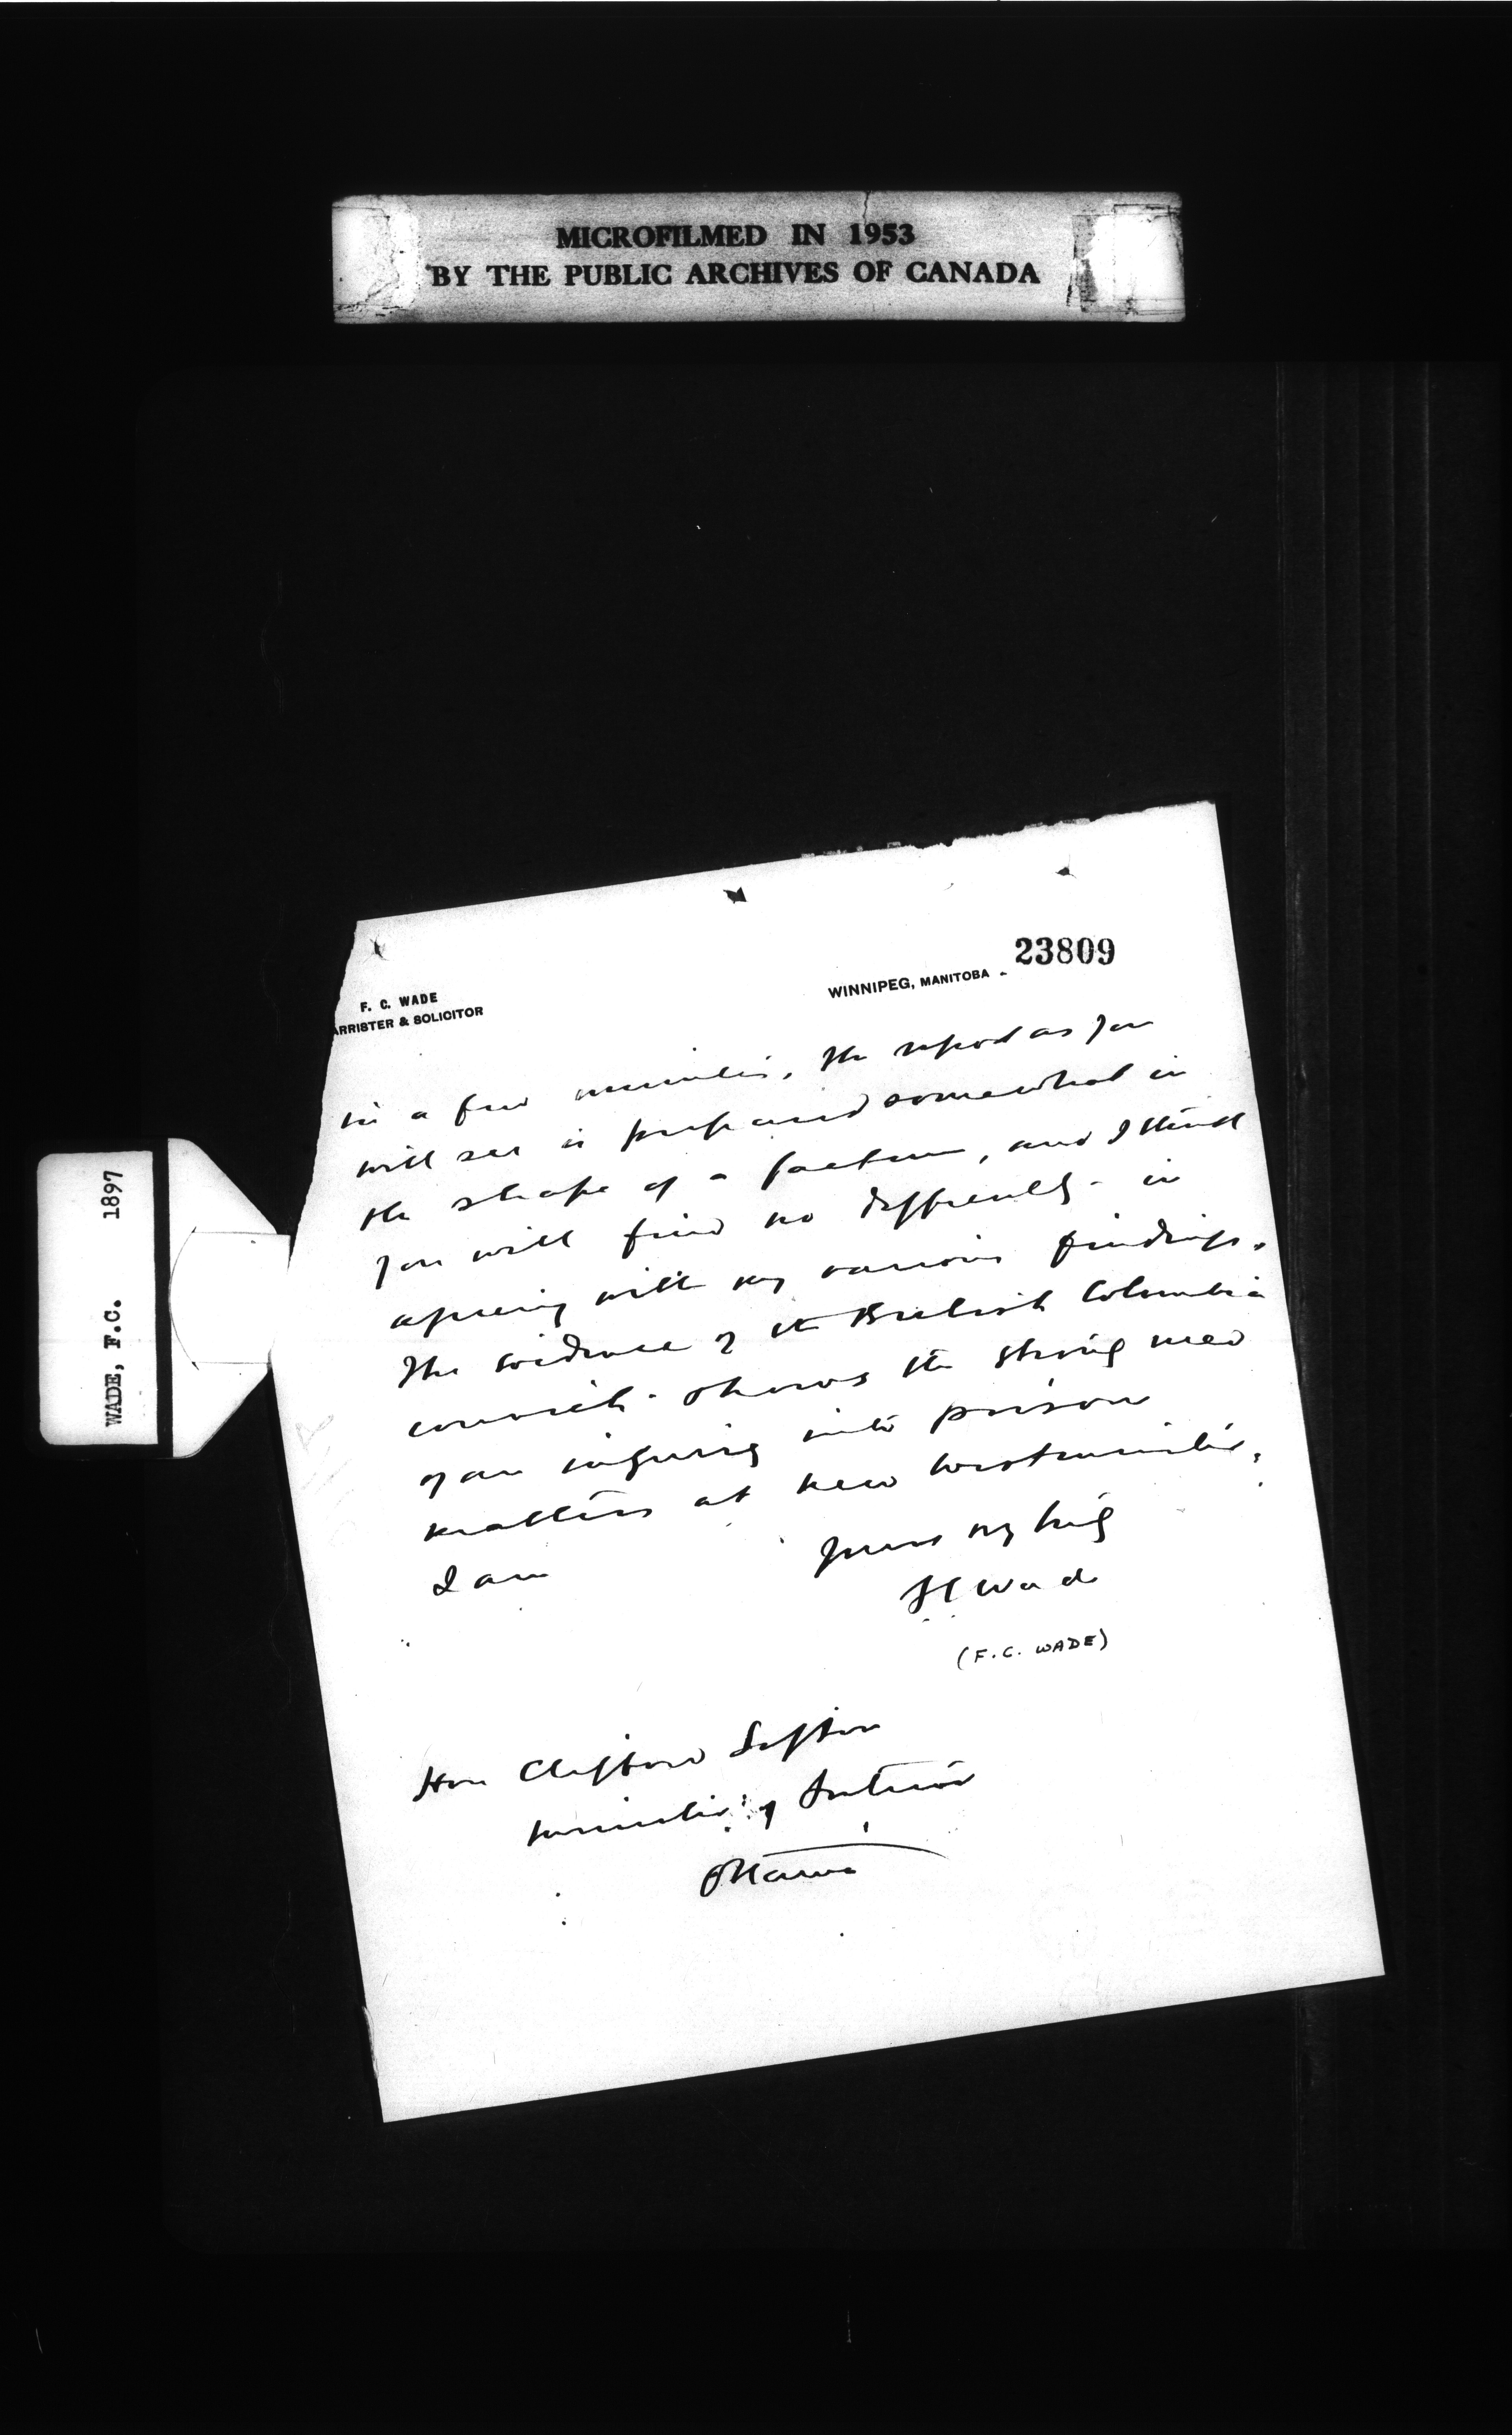 MICROFILMED IN 1953
BY THE PUBLIC ARCHIVES OF CANADA
WADE, F.C. 1897
23809
F. C. WADE
ARRISTER & SOLICITOR
WINNIPEG, MANITOBA
in a few minutes. The report as you
will see is prepared somewhat in
the shape of a factum, and I think
you will find no difficulty in
agreeing with my various findings.
The evidence of the British Columbia
convicts shows the strong need
of an inquiry into prison
matters at New Westminster.
I am
Yours truly
FCWade
(F.C. WADE)
Hon Clifford Sifton
Minister of Interior
Ottawa